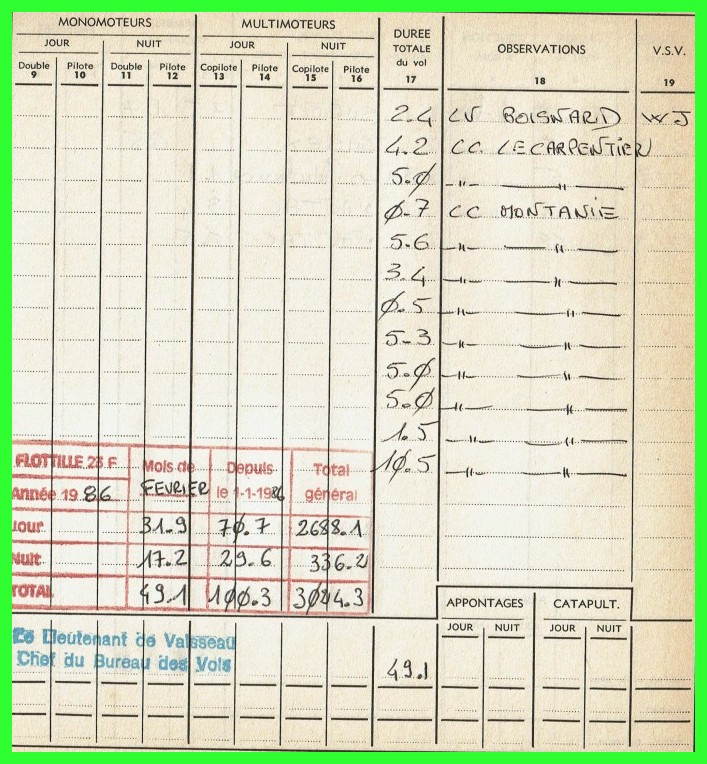 MONOMOTEURS MULTIMOTEURS DUREE TOTALE du vol OBSERVATIONS V.S.V.
JOUR NUIT JOUR NUIT
Double Pilote Double Pilote Copilote Pilote Copilote Pilote
9 10 11 12 13 14 15 16 17 18 19
2.4 LV BOISNARD WJ
4.2 CC. LECARPENTIER
5.0 -"- -"-
0.7 CC MONTANIE
5.6 -"- -"-
3.4 -"- -"-
0.5 -"- -"-
5.3 -"- -"-
5.0 -"- -"-
5.0 -"- -"-
1.5 -"- -"-
10.5 -"- -"-
FLOTTILLE 23 F Mois de Depuis Total
Année 19 86 FEVRIER le 1-1-1986 général
Jour 31.9 70.7 2688.1
Nuit 17.2 29.6 336.2
TOTAL 49.1 100.3 3024.3
APPONTAGES CATAPULT.
JOUR NUIT JOUR NUIT
Le Lieutenant de Vaisseau
Chef du Bureau des Vols
49.1